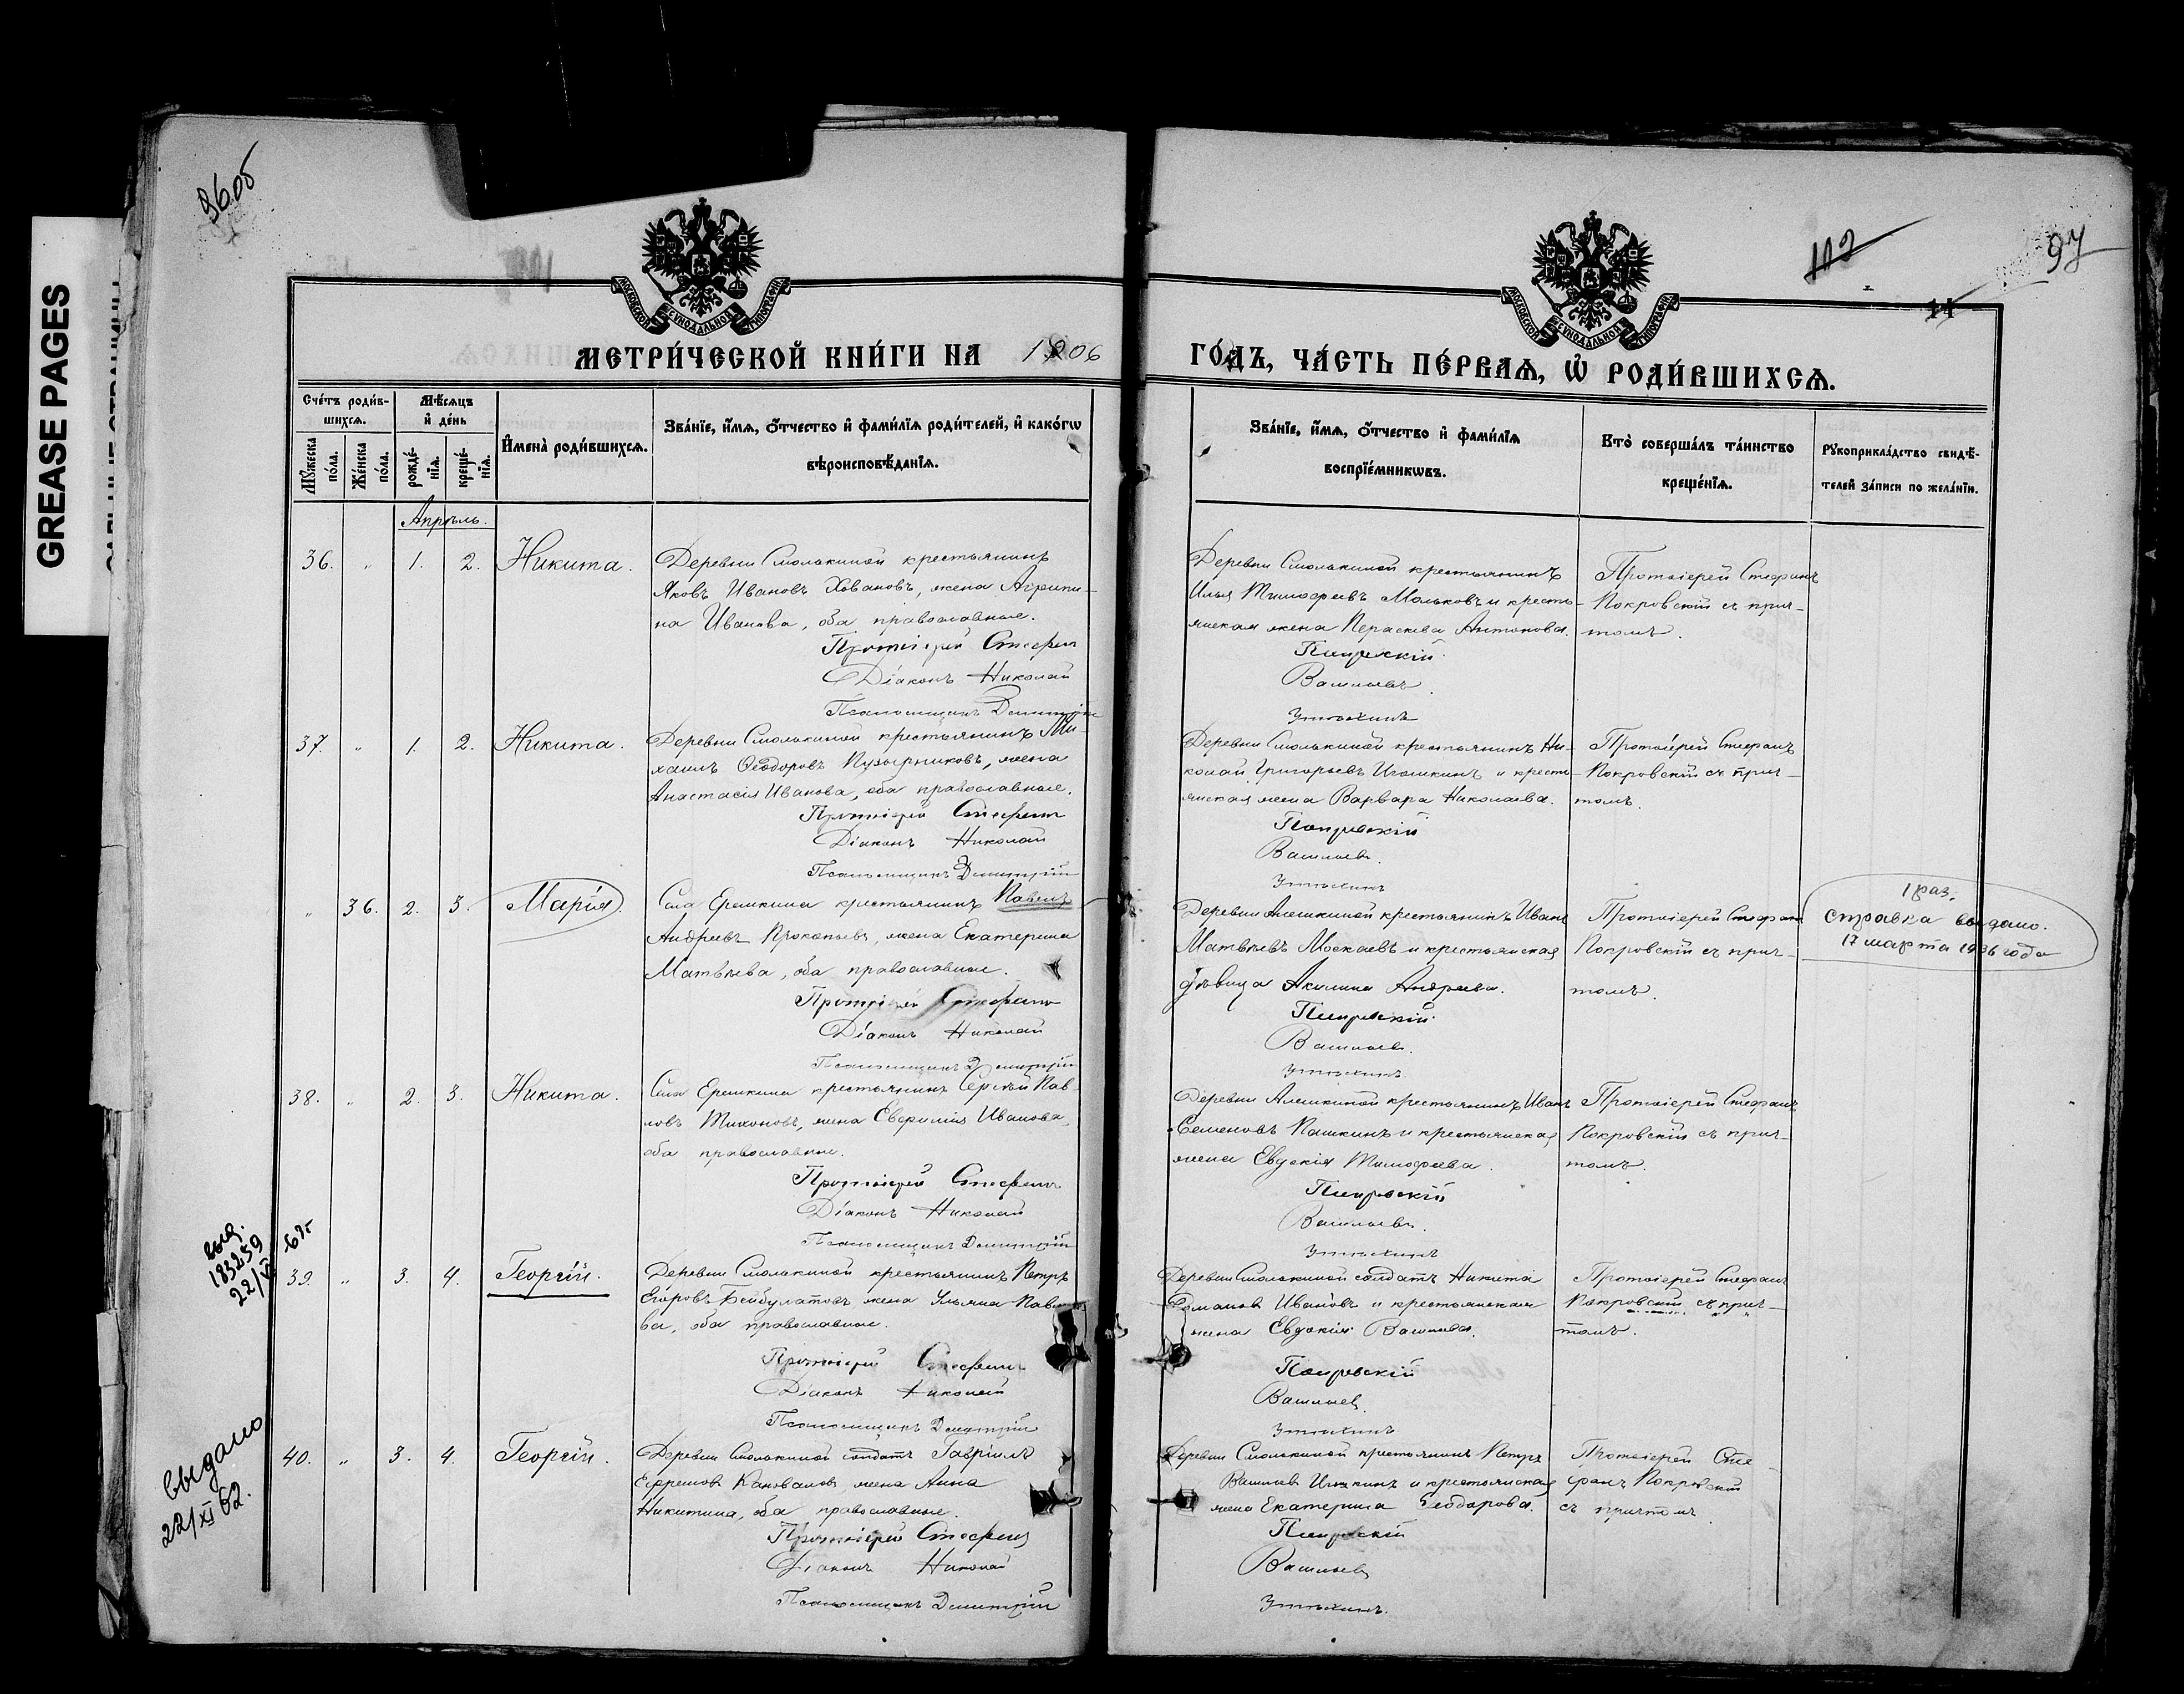 GREASE PAGES
96об
112
97
14
МОСКОВСКОЙ СѴНОДАЛЬНОЙ ТИПОГРАФІИ
МОСКОВСКОЙ СѴНОДАЛЬНОЙ ТИПОГРАФІИ
МЕТРИ́ЧЕСКОЙ КНИ́ГИ НА 1906
ГО́ДЪ, ЧА́СТЬ ПЕ́РВАѦ, Ѽ РОДИ́ВШИХСѦ.
Сче́тъ роди́в-
шихсѧ.
Мꙋжеска по́ла.
Же́нска по́ла.
Мѣ́сѧцъ
и҆ де́нь
рожде́-нїѧ.
креще́-нїѧ.
И҆мена̀ роди́вшихсѧ.
Зва́нїе, и҆́мѧ, ѻ҆́тчество и҆ фами́лїѧ роди́телей, и҆ како́гѡ
вѣроисповѣ́данїѧ.
Зва́нїе, и҆́мѧ, ѻ҆́тчество и҆ фами́лїѧ
воспрїе́мникѡвъ.
Кто̀ соверша́лъ та́инство
креще́нїѧ.
Рꙋкоприкла́дство свидѣ́-
телей за́писи по жела́нїю.
Апрѣль.
36. " 1. 2. Никита.
Деревни Смолькиной крестьянинъ
Яковъ Ивановъ Ховановъ, жена Агрипи-
на Иванова, оба православные.
Протоіерей Стефанъ
Діаконъ Николай
Псаломщикъ Димитрій
Деревни Смолькиной крестьянинъ
Илья Тимофеевъ Мальковъ и кресть-
янская жена Параскева Антонова.
Покровскій
Васильевъ.
Утѣхинъ
Протоіерей Стефанъ
Покровскій съ прич-
томъ.
37. " 1. 2. Никита.
Деревни Смолькиной крестьянинъ Ми-
хаилъ Ѳеодоровъ Пузырниковъ, жена
Анастасія Иванова, оба православные.
Протоіерей Стефанъ
Діаконъ Николай
Псаломщикъ Димитрій
Деревни Смолькиной крестьянинъ Ни-
колай Григорьевъ Игошкинъ и кресть-
янская жена Варвара Николаева.
Покровскій
Васильевъ.
Утѣхинъ
Протоіерей Стефанъ
Покровскій съ прич-
томъ.
" 36. 2. 3. Марія.
Села Еремкина крестьянинъ Павелъ
Андреевъ Прокопьевъ, жена Екатерина
Матвѣева, оба православные.
Протоіерей Стефанъ
Діаконъ Николай
Псаломщикъ Димитрій
Деревни Алешкиной крестьянинъ Иванъ
Матвѣевъ Москаевъ и крестьянская
дѣвица Акилина Андреева.
Покровскій
Васильевъ.
Утѣхинъ
Протоіерей Стефанъ
Покровскій съ прич-
томъ.
1 раз.
справка выдано.
17 марта 1936 года
38. " 2. 3. Никита.
Села Еремкина крестьянинъ Сергѣй Пав-
ловъ Тихоновъ, жена Евфимія Иванова,
оба православные.
Протоіерей Стефанъ
Діаконъ Николай
Псаломщикъ Димитрій
Деревни Алешкиной крестьянинъ Иванъ
Семеновъ Пашкинъ и крестьянская
жена Евдокія Тимофеева.
Покровскій
Васильевъ.
Утѣхинъ
Протоіерей Стефанъ
Покровскій съ прич-
томъ.
183259
39. " 3. 4. Георгій.
Деревни Смолькиной крестьянинъ Петръ
Егоровъ Бейбулатовъ жена Ульяна Павло-
ва, оба православные.
Протоіерей Стефанъ
Діаконъ Николай
Псаломщикъ Димитрій
Деревни Смолькиной солдатъ Никита
Романовъ Ивановъ и крестьянская
жена Евдокія Васильева.
Покровскій
Васильевъ
Утѣхинъ
Протоіерей Стефанъ
Покровскій съ прич-
томъ.
выдано
22/XI 62.
40. " 3. 4. Георгій.
Деревни Смолькиной солдатъ Гавріилъ
Ефремовъ Коноваловъ жена Анна
Никитина, оба православные.
Протоіерей Стефанъ
Діаконъ Николай
Псаломщикъ Димитрій
Деревни Смолькиной крестьянинъ Петръ
Васильевъ Илюкинъ и крестьянская
жена Екатерина Ѳеодорова.
Покровскій
Васильевъ
Утѣхинъ.
Протоіерей Сте-
фанъ Покровскій
съ причтомъ.